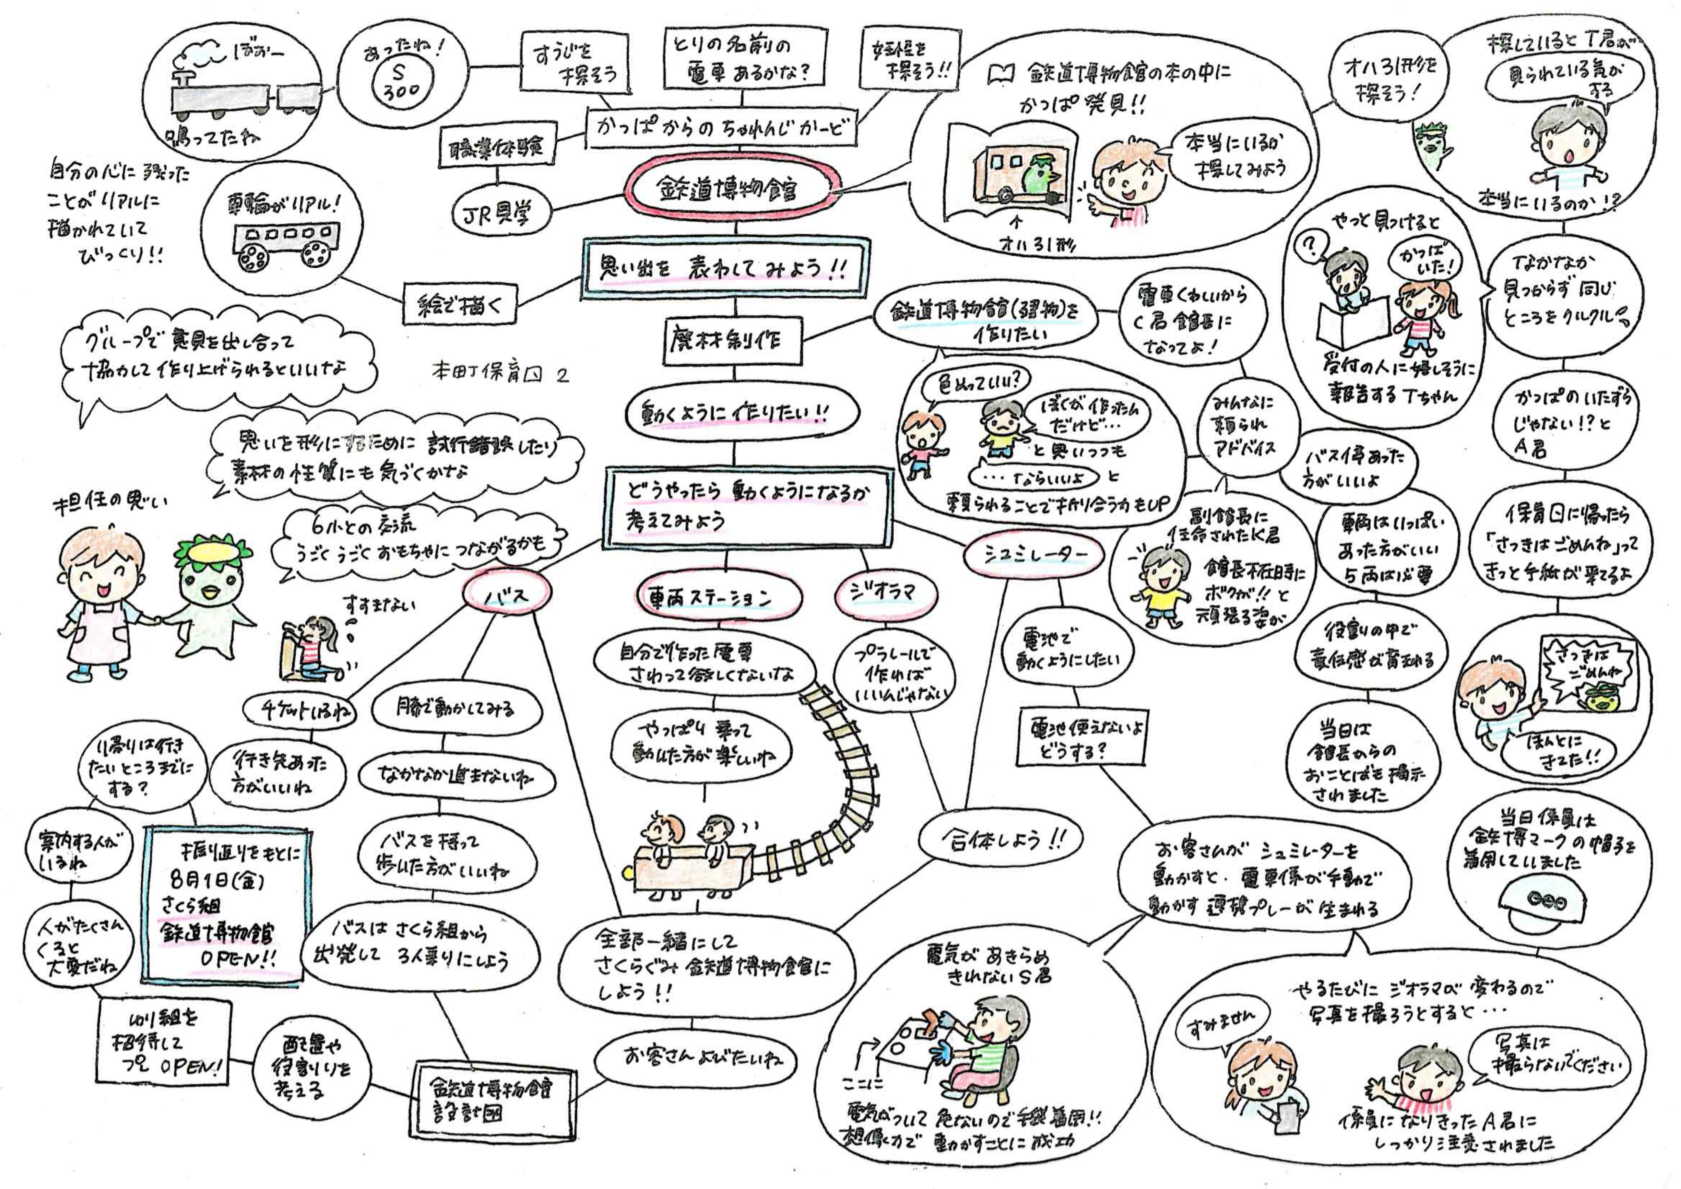 ぽぉー
鳴ってたね
あったね!
S
300
すうじを
探そう
とりの名前の
電車あるかな?
妖怪を
探そう!!
かっぱからのちゃれんじかーど
職業体験
鉄道博物館
JR見学
鉄道博物館の本の中に
かっぱ発見!!
本当にいるか
探してみよう
オハ31形
オハ31形を
探そう!
探しているとT君が
見られている気が
する
本当にいるのか!?
自分の心に残った
ことがリアルに
描かれていて
びっくり!!
車輪がリアル!
絵で描く
思い出を表わしてみよう!!
廃材制作
鉄道博物館(建物)を
作りたい
電車くわしいから
C君館長に
なってよ!
やっと見つけると
?
かっぱ
いた!
受付の人に嬉しそうに
報告するTちゃん
なかなか
見つからず同じ
ところをクルクル
グループで意見を出し合って
協力して作り上げられるといいな
本町保育園 2
動くように作りたい!!
色ぬっていい?
ぼくが作ったん
だけど…
と思いつつも
…ならいいよ
と
頼られることで折り合う力もUP
みんなに
頼られ
アドバイス
バス停あった
方がいいよ
かっぱのいたずら
じゃない!?と
A君
思いを形にするために試行錯誤したり
素材の性質にも気づくかな
担任の思い
6小との交流
うごくうごくおもちゃにつながるかも
どうやったら動くようになるか
考えてみよう
シュミレーター
副館長に
任命されたK君
館長不在時に
ボクが!!と
頑張る姿が
車両はいっぱい
あった方がいい
5両は必要
保育園に帰ったら
「さっきはごめんね」って
きっと手紙が来てるよ
バス
車両ステーション
ジオラマ
すすまない
自分で作った電車
さわって欲しくないな
プラレールで
作れば
いいんじゃない
電池で
動くようにしたい
役割の中で
責任感が育まれる
さっきは
ごめんね
ほんとに
きてた!!
チケットいるね
膝で動かしてみる
やっぱり乗って
動いた方が楽しいね
電池使えないよ
どうする?
当日は
館長からの
おことばも掲示
されました
帰りは行き
たいところまでに
する?
行き先あった
方がいいね
なかなか進まないね
案内する人が
いるね
振り返りをもとに
8月1日(金)
さくら組
鉄道博物館
OPEN!!
バスを持って
歩いた方がいいね
合体しよう!!
お客さんがシュミレーターを
動かすと、電車係が手動で
動かす連携プレーが生まれる
当日係員は
鉄博マークの帽子を
着用していました
人がたくさん
くると
大変だね
バスはさくら組から
出発して3人乗りにしよう
全部一緒にして
さくらぐみ鉄道博物館に
しよう!!
電気があきらめ
きれないS君
ここに
電気がついて危ないので手袋着用!!
想像力で動かすことに成功
やるたびにジオラマが変わるので
写真を撮ろうとすると…
すみません
写真は
撮らないでください
係員になりきったA君に
しっかり注意されました
組を
招待して
プレOPEN!
配置や
役割りを
考える
鉄道博物館
設計図
お客さんよびたいね